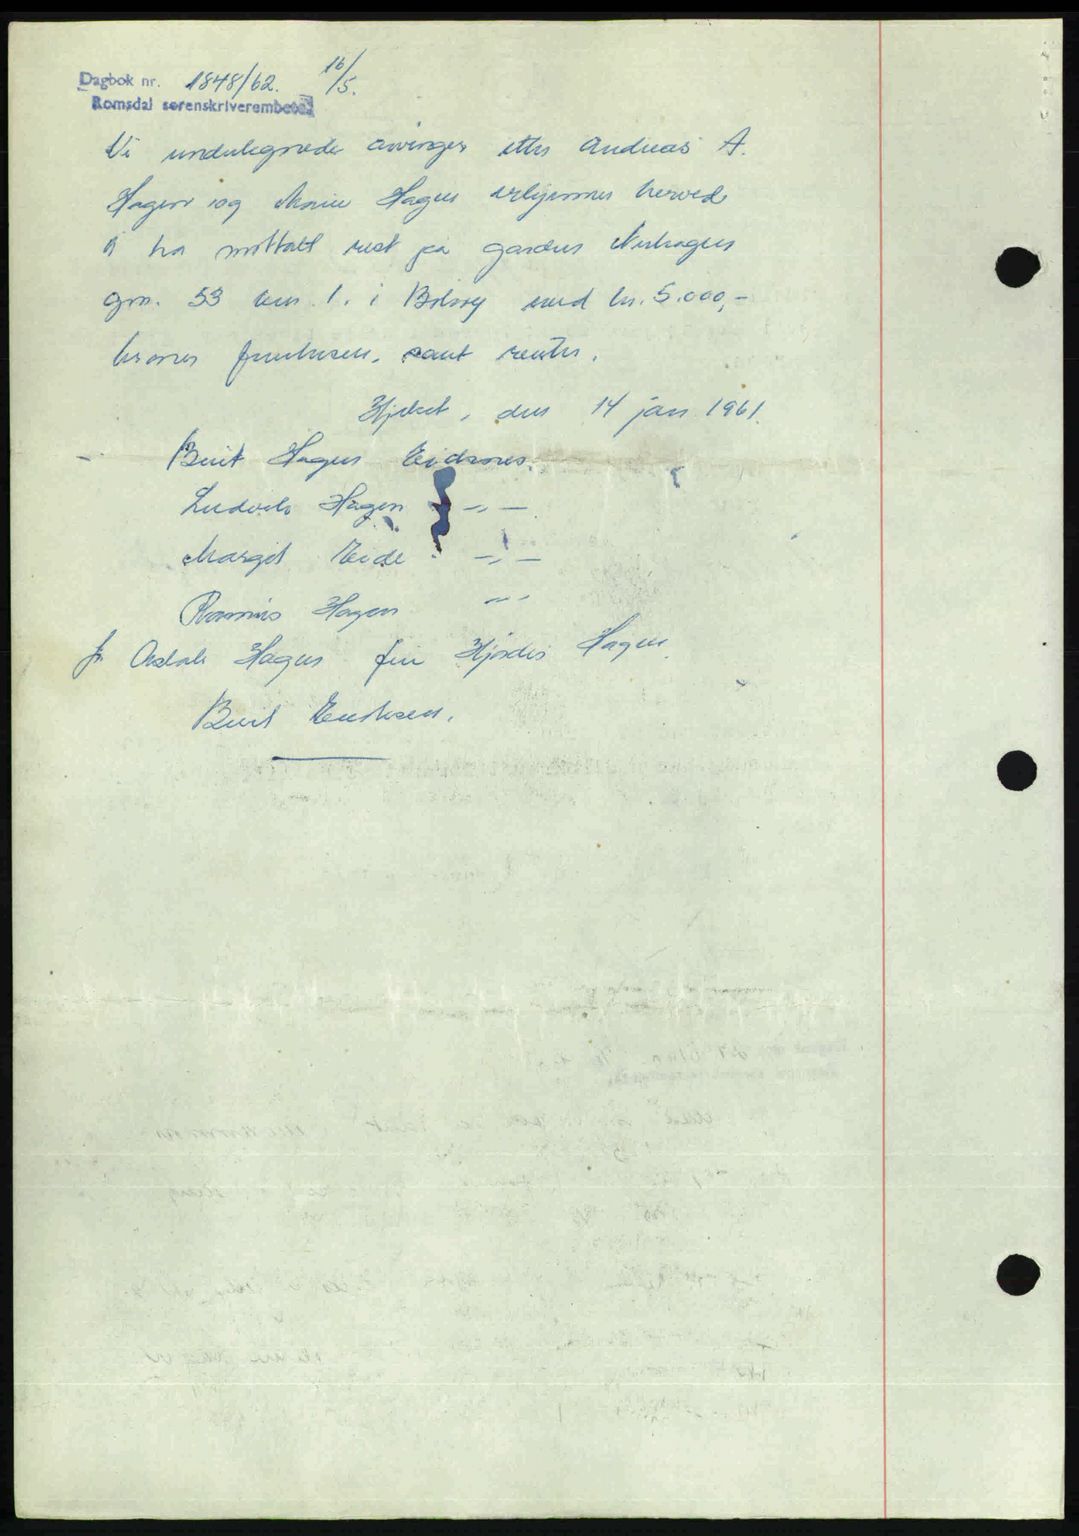 Dagbok nr. 1848/62. 16/5.
Romsdal sorenskriverembete
Vi undertegnede arvinger etter Andreas A.
Hagen og Marie Hagen erkjenner herved
å ha mottatt rest på garden Nerhagen
gnr. 53 bnr. 1. i Bolsøy med kr. 5.000,-
kroner femtusen. samt renter.
Hjelset, den 14 jan 1961.
Berit Hagen Eidsnes.
Ludvik Hagen -,,-
Margit Eide -,,-
Hagen -,,-
Hagen for Hjørdis Hagen
Berit